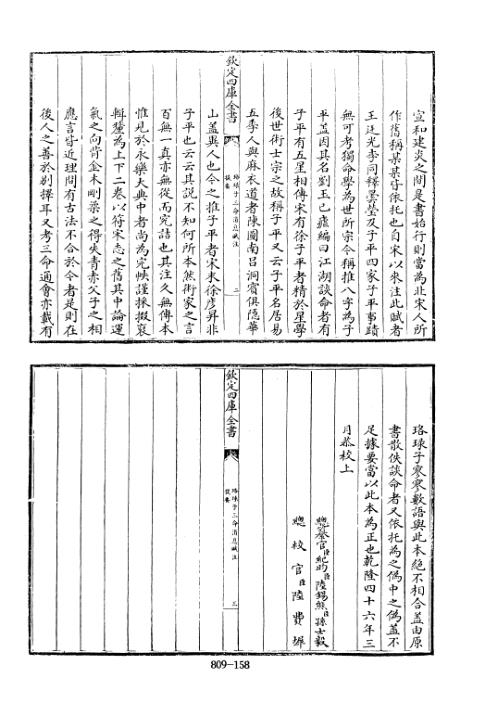 宣和建炎之間是書始行則當為北宋人所
作舊稱某某皆依托也自宋以來注此賦者
王廷光李同釋曇瑩及子平四家子平事蹟
無可考獨命學為世所宗今稱推八字為子
平蓋因其名劉玉已瘧編曰江湖談命者有
子平有五星相傳宋有徐子平者精於星學
後世術士宗之故稱子平又云子平名居易
五季人與麻衣道者陳圖南呂洞賓俱隱華
欽定四庫全書
珞琭子三命消息賦注
提要
二
山蓋異人也今之推子平者宋末徐彥昇非
子平也云云其說不知何所本然術家之言
百無一真亦無從而究詰也其注久無傳本
惟見於永樂大典中者尚為完帙謹採掇裒
輯釐為上下二卷以符宋志之舊其中論運
氣之向背金木剛柔之得失青赤父子之相
應言皆近理間有古法不合於今者是則在
後人之善於別擇耳又考三命通會亦載有
珞琭子寥寥數語與此本絕不相合蓋由原
書散佚談命者又依托為之偽中之偽蓋不
足據要當以此本為正也乾隆四十六年三
月恭校上
總纂官臣紀昀臣陸錫熊臣孫士毅
總校官臣陸費墀
欽定四庫全書
珞琭子三命消息賦注
提要
三
809-158